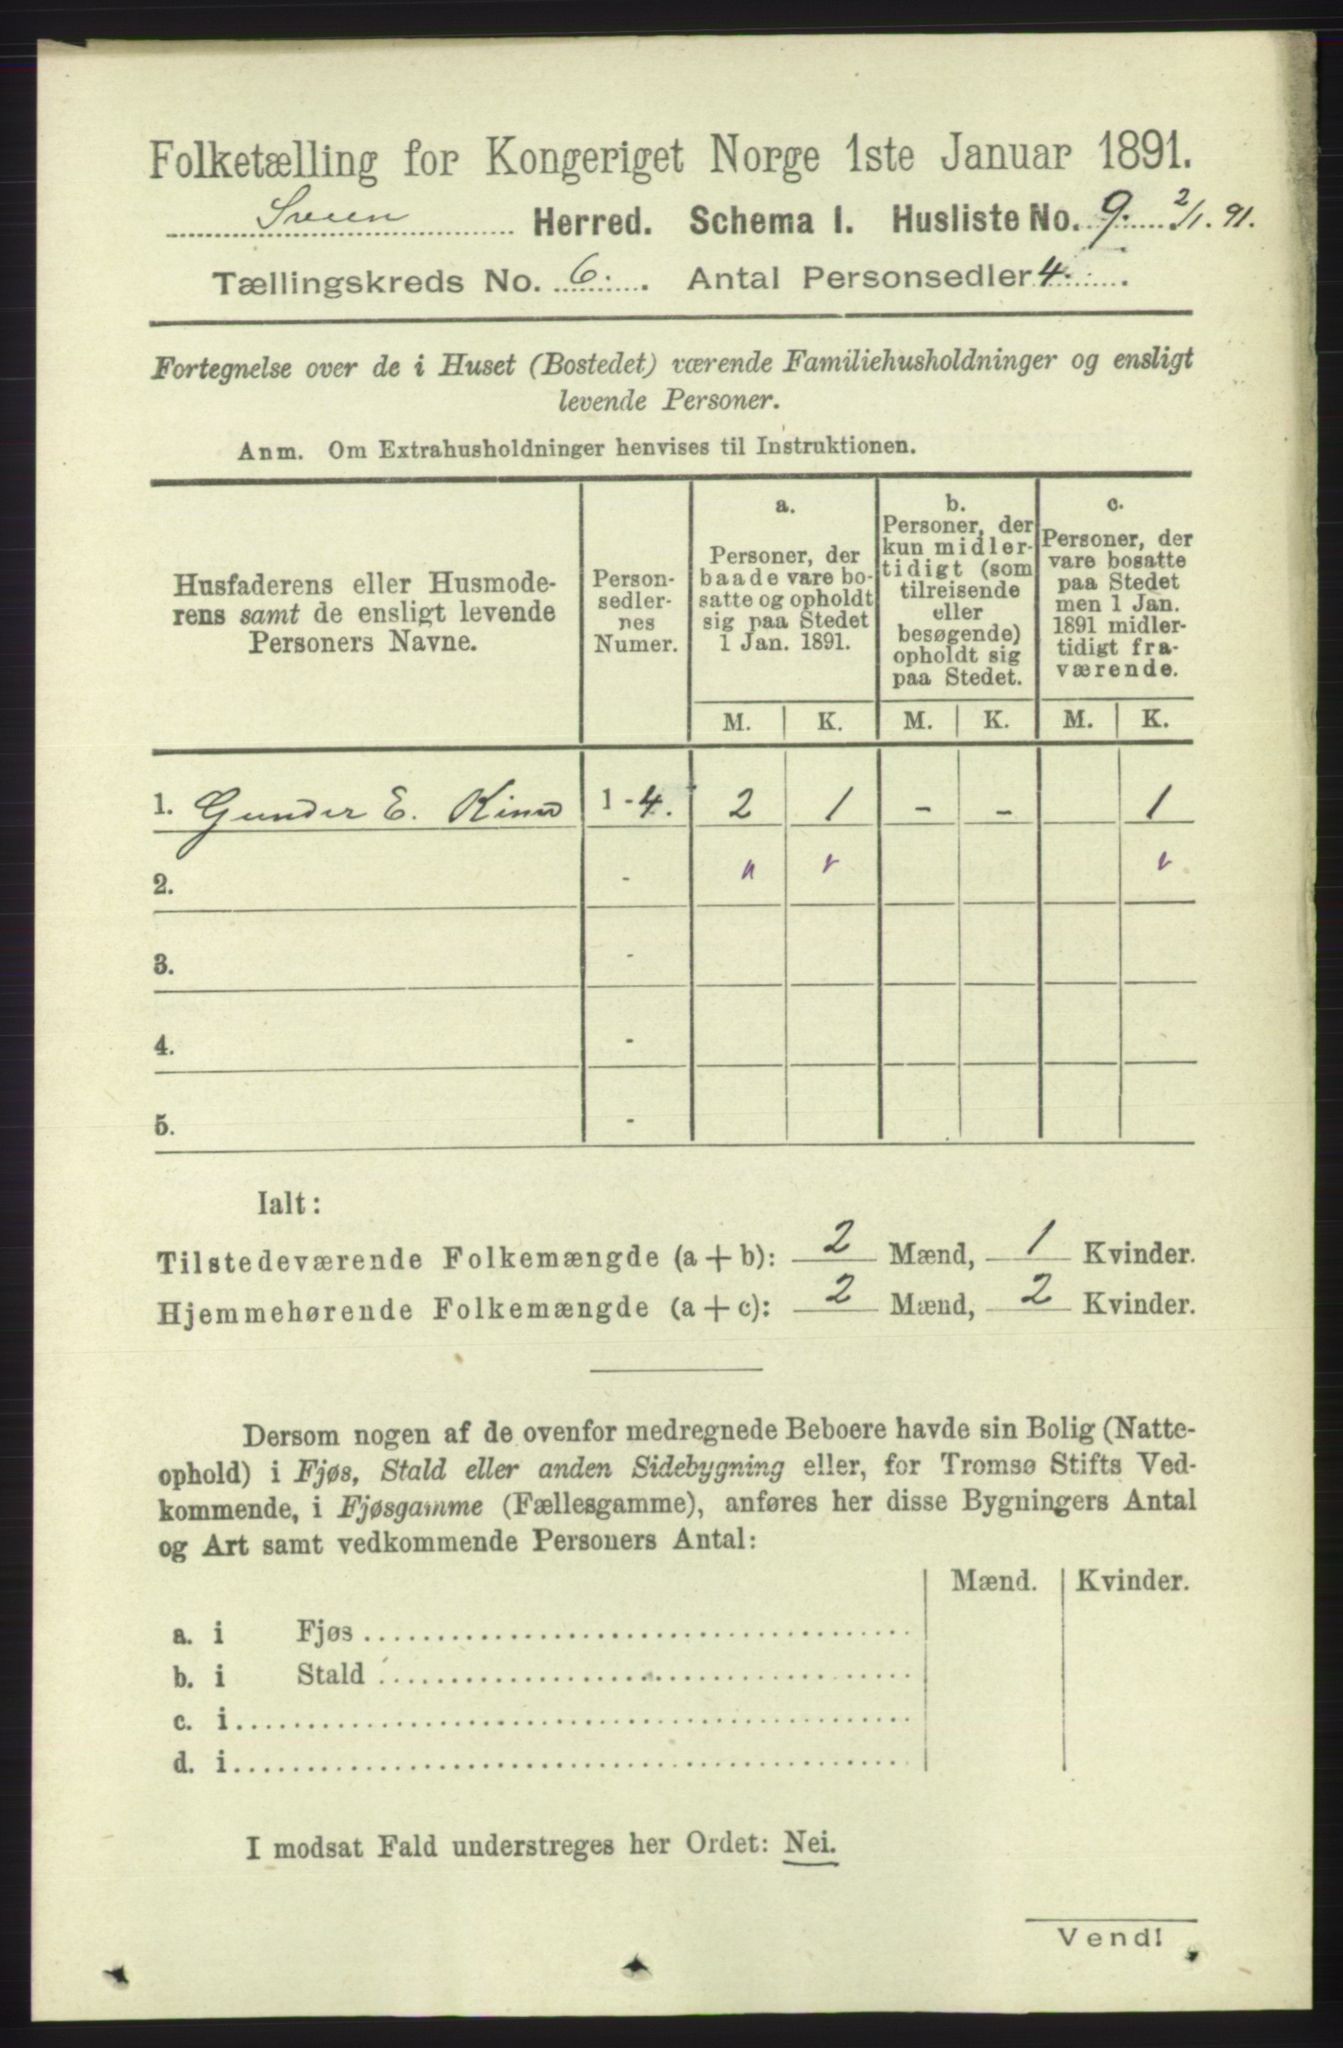 Folketælling for Kongeriget Norge 1ste Januar 1891.
Sveen Herred. Schema I. Husliste No. 9. 2/1. 91.
Tællingskreds No. 6. Antal Personsedler 4.
Fortegnelse over de i Huset (Bostedet) værende Familiehusholdninger og ensligt
levende Personer.
Anm. Om Extrahusholdninger henvises til Instruktionen.
Husfaderens eller Husmode-
rens samt de ensligt levende
Personers Navne.
Person-
sedler-
nes
Numer.
a.
Personer, der
baade vare bo-
satte og opholdt
sig paa Stedet
1 Jan. 1891.
b.
Personer, der
kun midler-
tidigt (som
tilreisende
eller
besøgende)
opholdt sig
paa Stedet.
c.
Personer, der
vare bosatte
paa Stedet
men 1 Jan.
1891 midler-
tidigt fra-
værende.
M. K. M. K. M. K.
1. Gunder E. 1 - 4. 2 1 - - 1
2. -
3. -
4. -
5. -
Ialt:
Tilstedeværende Folkemængde (a + b): 2 Mænd, 1 Kvinder.
Hjemmehørende Folkemængde (a + c): 2 Mænd, 2 Kvinder.
Dersom nogen af de ovenfor medregnede Beboere havde sin Bolig (Natte-
ophold) i Fjøs, Stald eller anden Sidebygning eller, for Tromsø Stifts Ved-
kommende, i Fjøsgamme (Fællesgamme), anføres her disse Bygningers Antal
og Art samt vedkommende Personers Antal:
Mænd. Kvinder.
a. i Fjøs
b. i Stald
c. i
d. i
I modsat Fald understreges her Ordet: Nei.
Vend!